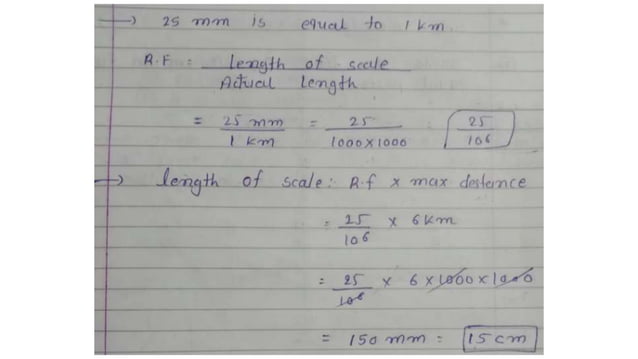 → 25 mm is equal to 1 km.
R.F = Length of scale / Actual Length
= 25 mm / 1 Km = 25 / 1000×1000 25 / 10⁶
→ length of scale: R.f × max destance
= 25 / 10⁶ × 6 Km
= 25 / 10⁶ × 6 × 1000 × 1000
= 150 mm = 15 cm